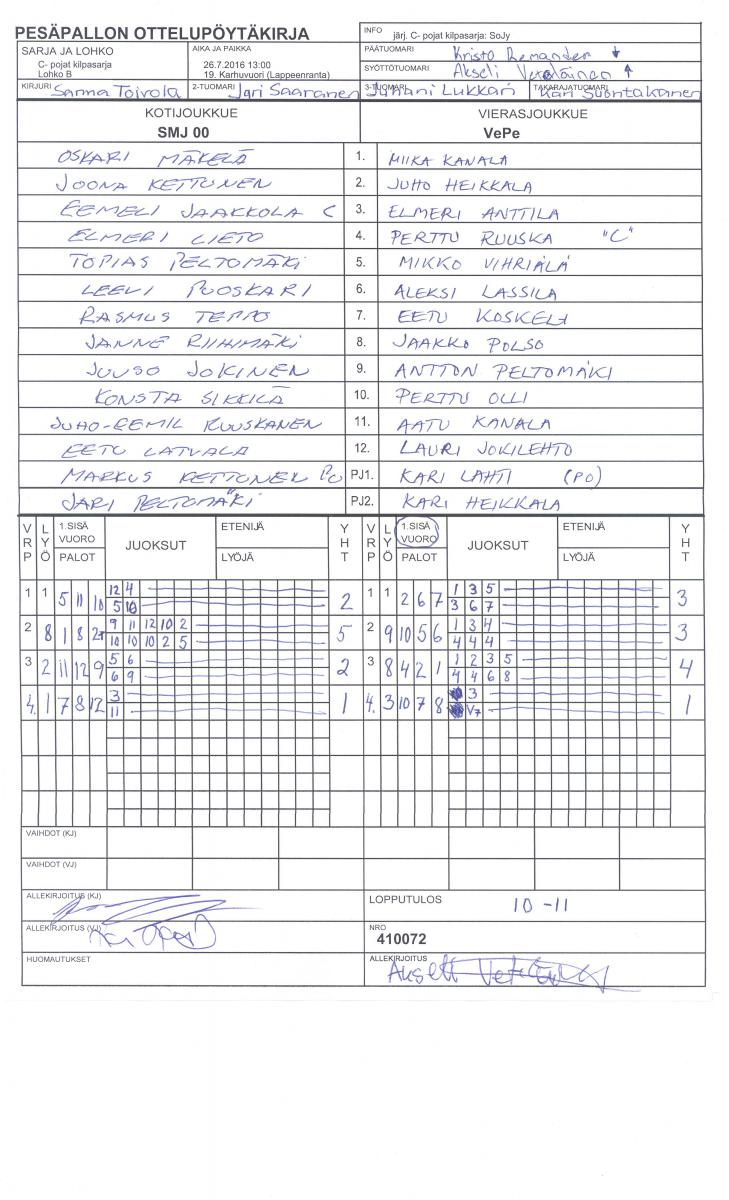 PESÄPALLON OTTELUPÖYTÄKIRJA
INFO järj. C- pojat kilpasarja: SoJy
SARJA JA LOHKO
C- pojat kilpasarja
Lohko B
AIKA JA PAIKKA
26.7.2016 13:00
19. Karhuvuori (Lappeenranta)
PÄÄTUOMARI Kristo Remander ↓
SYÖTTÖTUOMARI Akseli Vetoläinen ↑
KIRJURI Sanna Toivola 2-TUOMARI Jari Saaranen 3-TUOMARI Juhani Lukkari TAKARAJATUOMARI Kari Suontakanen
KOTIJOUKKUE VIERASJOUKKUE
SMJ 00 VePe
OSKARI MÄKELÄ 1. MIIKA KANALA
JOONA KETTUNEN 2. JUHO HEIKKALA
EEMELI JAAKKOLA C 3. ELMERI ANTTILA
ELMERI LIETO 4. PERTTU RUUSKA "C"
TOPIAS PELTOMÄKI 5. MIKKO VIHRIÄLÄ
LEEVI PUOSKARI 6. ALEKSI LASSILA
RASMUS TEPPO 7. EETU KOSKELA
JANNE RIIHIMÄKI 8. JAAKKO POLSO
JUUSO JOKINEN 9. ANTTON PELTOMÄKI
KONSTA SIKKILÄ 10. PERTTU OLLI
JUHO-EEMIL RUUSKANEN 11. AATU KANALA
EETU LATVALA 12. LAURI JOKILEHTO
MARKUS KETTUNEN PO PJ1. KARI LAHTI (PO)
JARI PELTOMÄKI PJ2. KARI HEIKKALA
VRP LYÖ 1.SISÄ VUORO PALOT JUOKSUT ETENIJÄ LYÖJÄ YHT VRP LYÖ 1.SISÄ VUORO PALOT JUOKSUT ETENIJÄ LYÖJÄ YHT
1 1 5 11 10 12 4 2 1 1 2 6 7 1 3 5 3
5 10 3 6 7
2 8 1 8 2 9 11 12 10 2 5 2 9 10 5 6 1 3 4 3
10 10 10 2 5 4 4 4
3 2 11 12 9 5 6 2 3 8 4 2 1 1 2 3 5 4
6 9 4 4 6 8
4. 1 7 8 12 3 1 4. 3 10 7 8 3 1
11 V7
VAIHDOT (KJ)
VAIHDOT (VJ)
ALLEKIRJOITUS (KJ)
LOPPUTULOS 10 -11
ALLEKIRJOITUS (VJ)
NRO
410072
HUOMAUTUKSET
ALLEKIRJOITUS